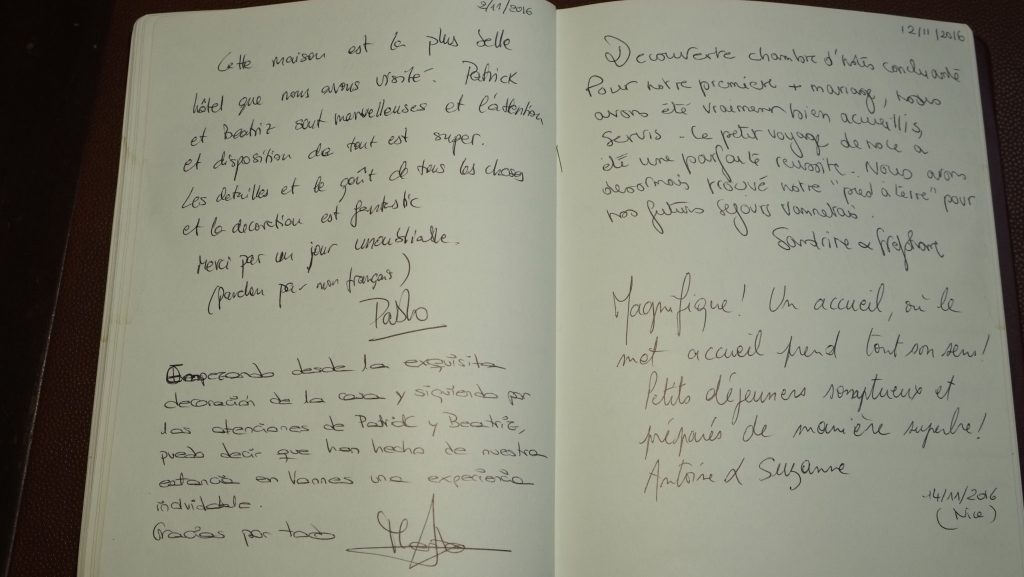 2/11/2016
Cette maison est la plus belle
hôtel que nous avons visité. Patrick
et Beatriz sont merveilleuses et l'attention
et disposition de tout est super.
Les detailles et le goût de tous les choses
et la decoration est fantastic
Merci par un jour unoubliable.
(Pardon par mon français)
Pablo
Empezando desde la exquisita
decoración de la casa y siguiendo por
las atenciones de Patrick y Beatriz,
puedo decir que han hecho de nuestra
estancia en Vannes una experiencia
inolvidable.
Gracias por todo
12/11/2016
Decouverte chambre d'hôtes concluante
Pour notre première + mariage, nous
avons été vraiment bien accueillis,
servis. Ce petit voyage de noce a
été une parfaite reussite. Nous avons
desormais trouvé notre "pied à terre" pour
nos futurs sejours vannetais.
Sandrine & Stéphane
Magnifique! Un accueil, où le
mot accueil prend tout son sens!
Petits déjeuners somptueux et
préparés de manière superbe!
Antoine & Suzanne
14/11/2016
(Nice)